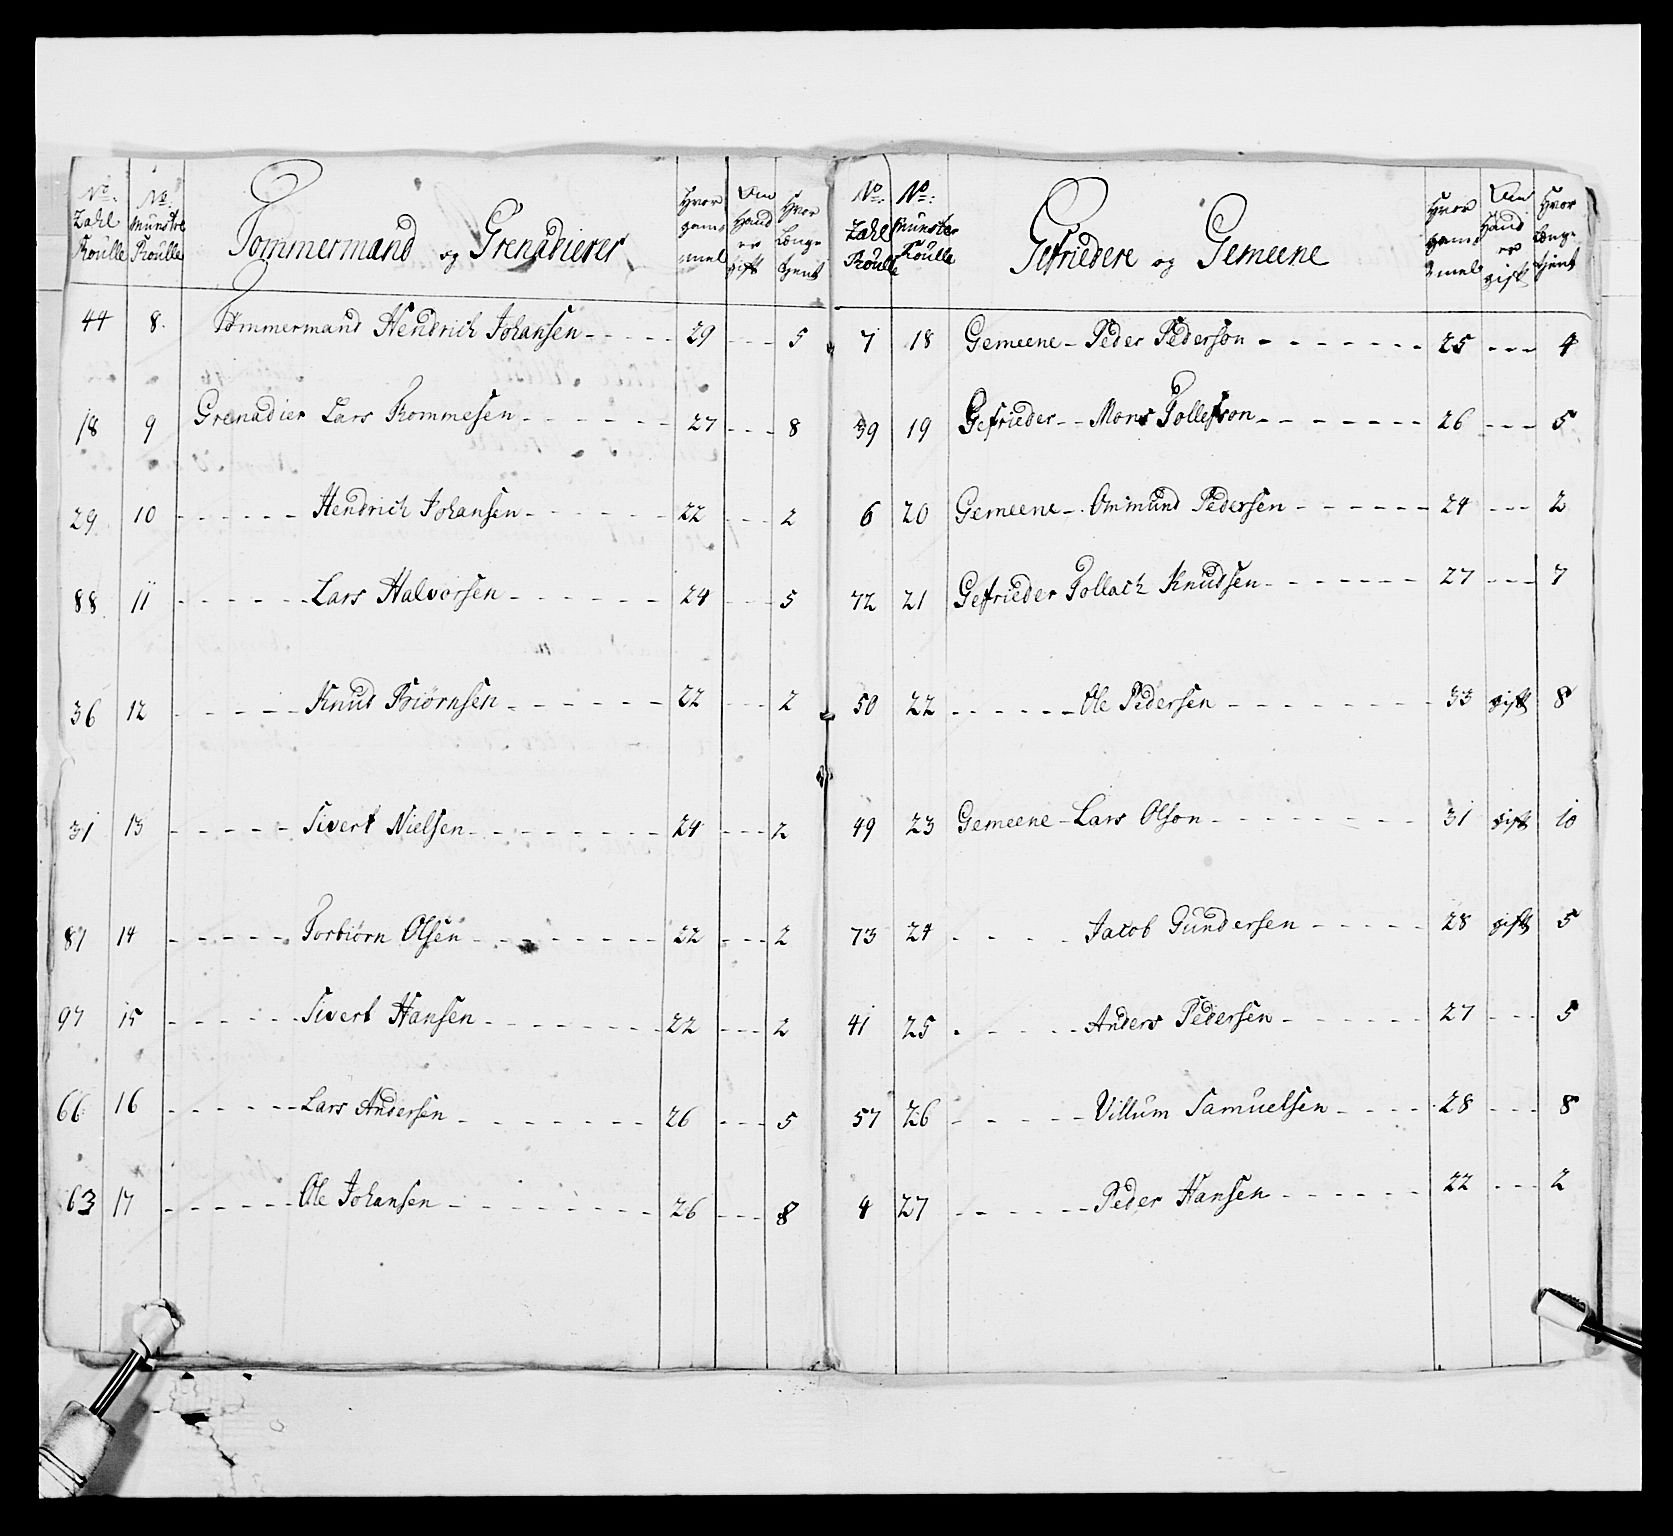 No: Zahl Roulle | No: Munstre Roulle | Tømmermand og Grenadierer | Hvor gam mel | Om Hand er gift | Hvor Længe tient
44 8. Tømmermand Hendrich Johansen 29 --- 5
18 9 Grenadier Lars Rommesen 27 --- 8
29 10 Hendrich Johansen 22 --- 2
88 11 Lars Halvorsen 24 --- 5
36 12 Knud Biørnsen 22 --- 2
31 13 Sivert Nielsen 24 --- 2
87 14 Torbiørn Olsen 22 --- 2
97 15 Sivert Hansen 22 --- 2
66 16 Lars Andersen 26 --- 5
63 17 Ole Johansen 26 --- 8
No: Zahl Roulle | No: Munster Roulle | Gefriedere og Gemeene | Hvor gam mel | Om Hand er gift | Hvor Længe tient
7 18 Gemeene Peder Pederson 25 --- 4
39 19 Gefrieder Mons Tollefson 26 --- 5
6 20 Gemeene Ommund Pedersen 24 --- 2
72 21 Gefrieder Tollach Knudsen 27 --- 7
50 22 Ole Pedersen 33 gift 8
49 23 Gemeene Lars Olson 31 gift 10
73 24 Jacob Gundersen 28 gift 5
41 25 Anders Pedersen 27 --- 5
57 26 Villum Samuelsen 28 --- 8
4 27 Peder Hansen 22 --- 2